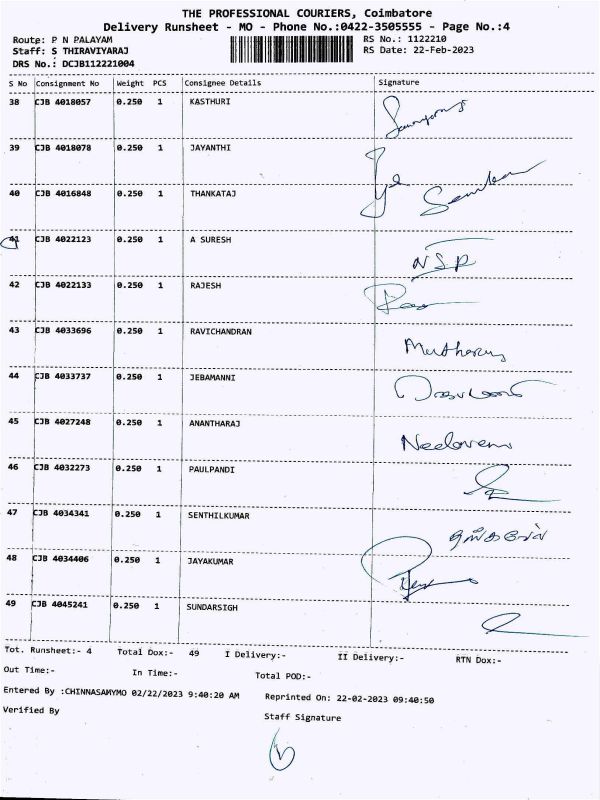 THE PROFESSIONAL COURIERS, Coimbatore
Delivery Runsheet - MO - Phone No.:0422-3505555 - Page No.:4
Route: P N PALAYAM RS No.: 1122210
Staff: S THIRAVIYARAJ RS Date: 22-Feb-2023
DRS No.: DCJB112221004
S No Consignment No Weight PCS Consignee Details Signature
38 CJB 4018057 0.250 1 KASTHURI
39 CJB 4018078 0.250 1 JAYANTHI
40 CJB 4016848 0.250 1 THANKATAJ
41 CJB 4022123 0.250 1 A SURESH NSP
42 CJB 4022133 0.250 1 RAJESH
43 CJB 4033696 0.250 1 RAVICHANDRAN
44 CJB 4033737 0.250 1 JEBAMANNI
45 CJB 4027248 0.250 1 ANANTHARAJ
46 CJB 4032273 0.250 1 PAULPANDI
47 CJB 4034341 0.250 1 SENTHILKUMAR
48 CJB 4034406 0.250 1 JAYAKUMAR
49 CJB 4045241 0.250 1 SUNDARSIGH
Tot. Runsheet:- 4 Total Dox:- 49 I Delivery:- II Delivery:- RTN Dox:-
Out Time:- In Time:- Total POD:-
Entered By :CHINNASAMYMO 02/22/2023 9:40:20 AM Reprinted On: 22-02-2023 09:40:50
Verified By Staff Signature